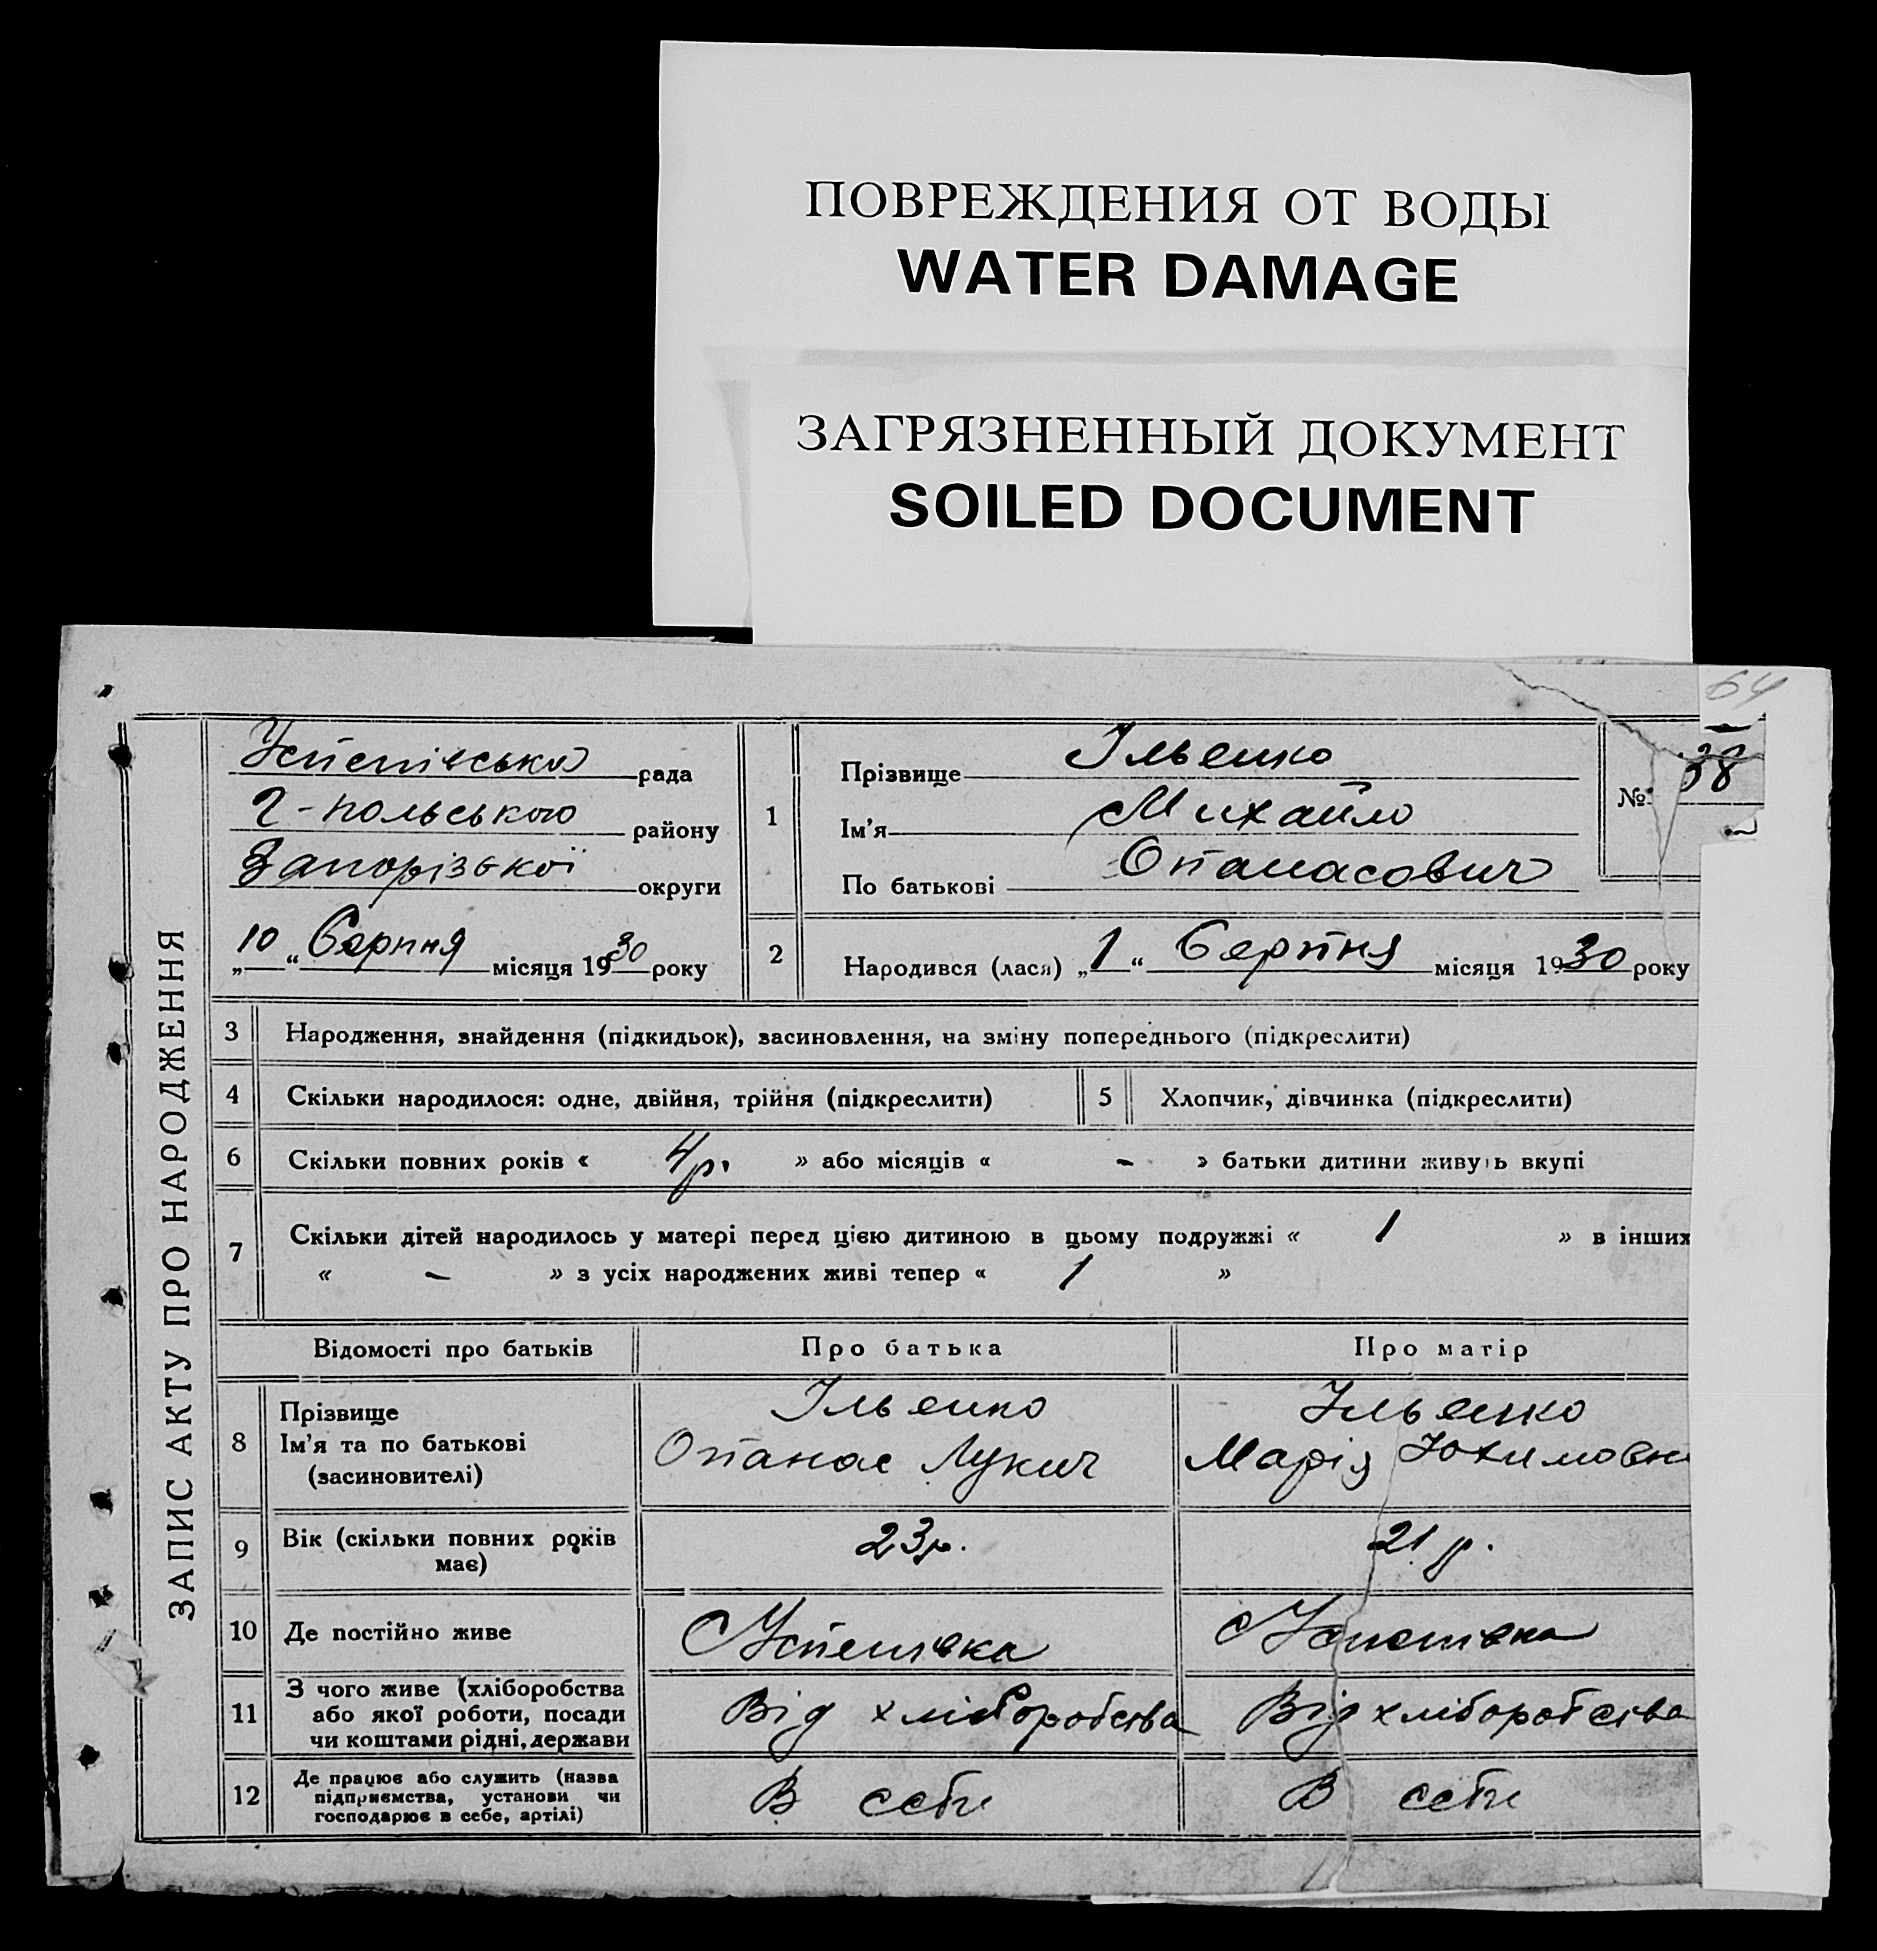 ПОВРЕЖДЕНИЯ ОТ ВОДЫ
WATER DAMAGE
ЗАГРЯЗНЕННЫЙ ДОКУМЕНТ
SOILED DOCUMENT
64
ЗАПИС АКТУ ПРО НАРОДЖЕННЯ
Успенівська рада
Г-польського району
Запорізької округи
„10“ Серпня місяця 1930 року
1
Прізвище Ільенко
Ім'я Михайло
По батькові Опанасович
№ 38
2
Народився (лася) „1“ Серпня місяця 1930 року
3 Народження, знайдення (підкидьок), засиновлення, на зміну попереднього (підкреслити)
4 Скільки народилося: одне, двійня, трійня (підкреслити)
5 Хлопчик, дівчинка (підкреслити)
6 Скільки повних років « 4р. » або місяців « - » батьки дитини живуть вкупі
7 Скільки дітей народилось у матері перед цією дитиною в цьому подружжі « 1 » в інших
« - » з усіх народжених живі тепер « 1 »
Відомості про батьків Про батька Про матір
8
Прізвище
Ім'я та по батькові
(засиновителі)
Ільенко
Опанас Лукич
Ільенко
Марія Юхимовн
9
Вік (скільки повних років
має)
23р.
21 р.
10 Де постійно живе
Успенівка
Успенівка
11
З чого живе (хліборобства
або якої роботи, посади
чи коштами рідні, держави
Від хліборобства
Від хліборобства
12
Де працює або служить (назва
підприємства, установи чи
господарює в себе, артілі)
В себе
В себе